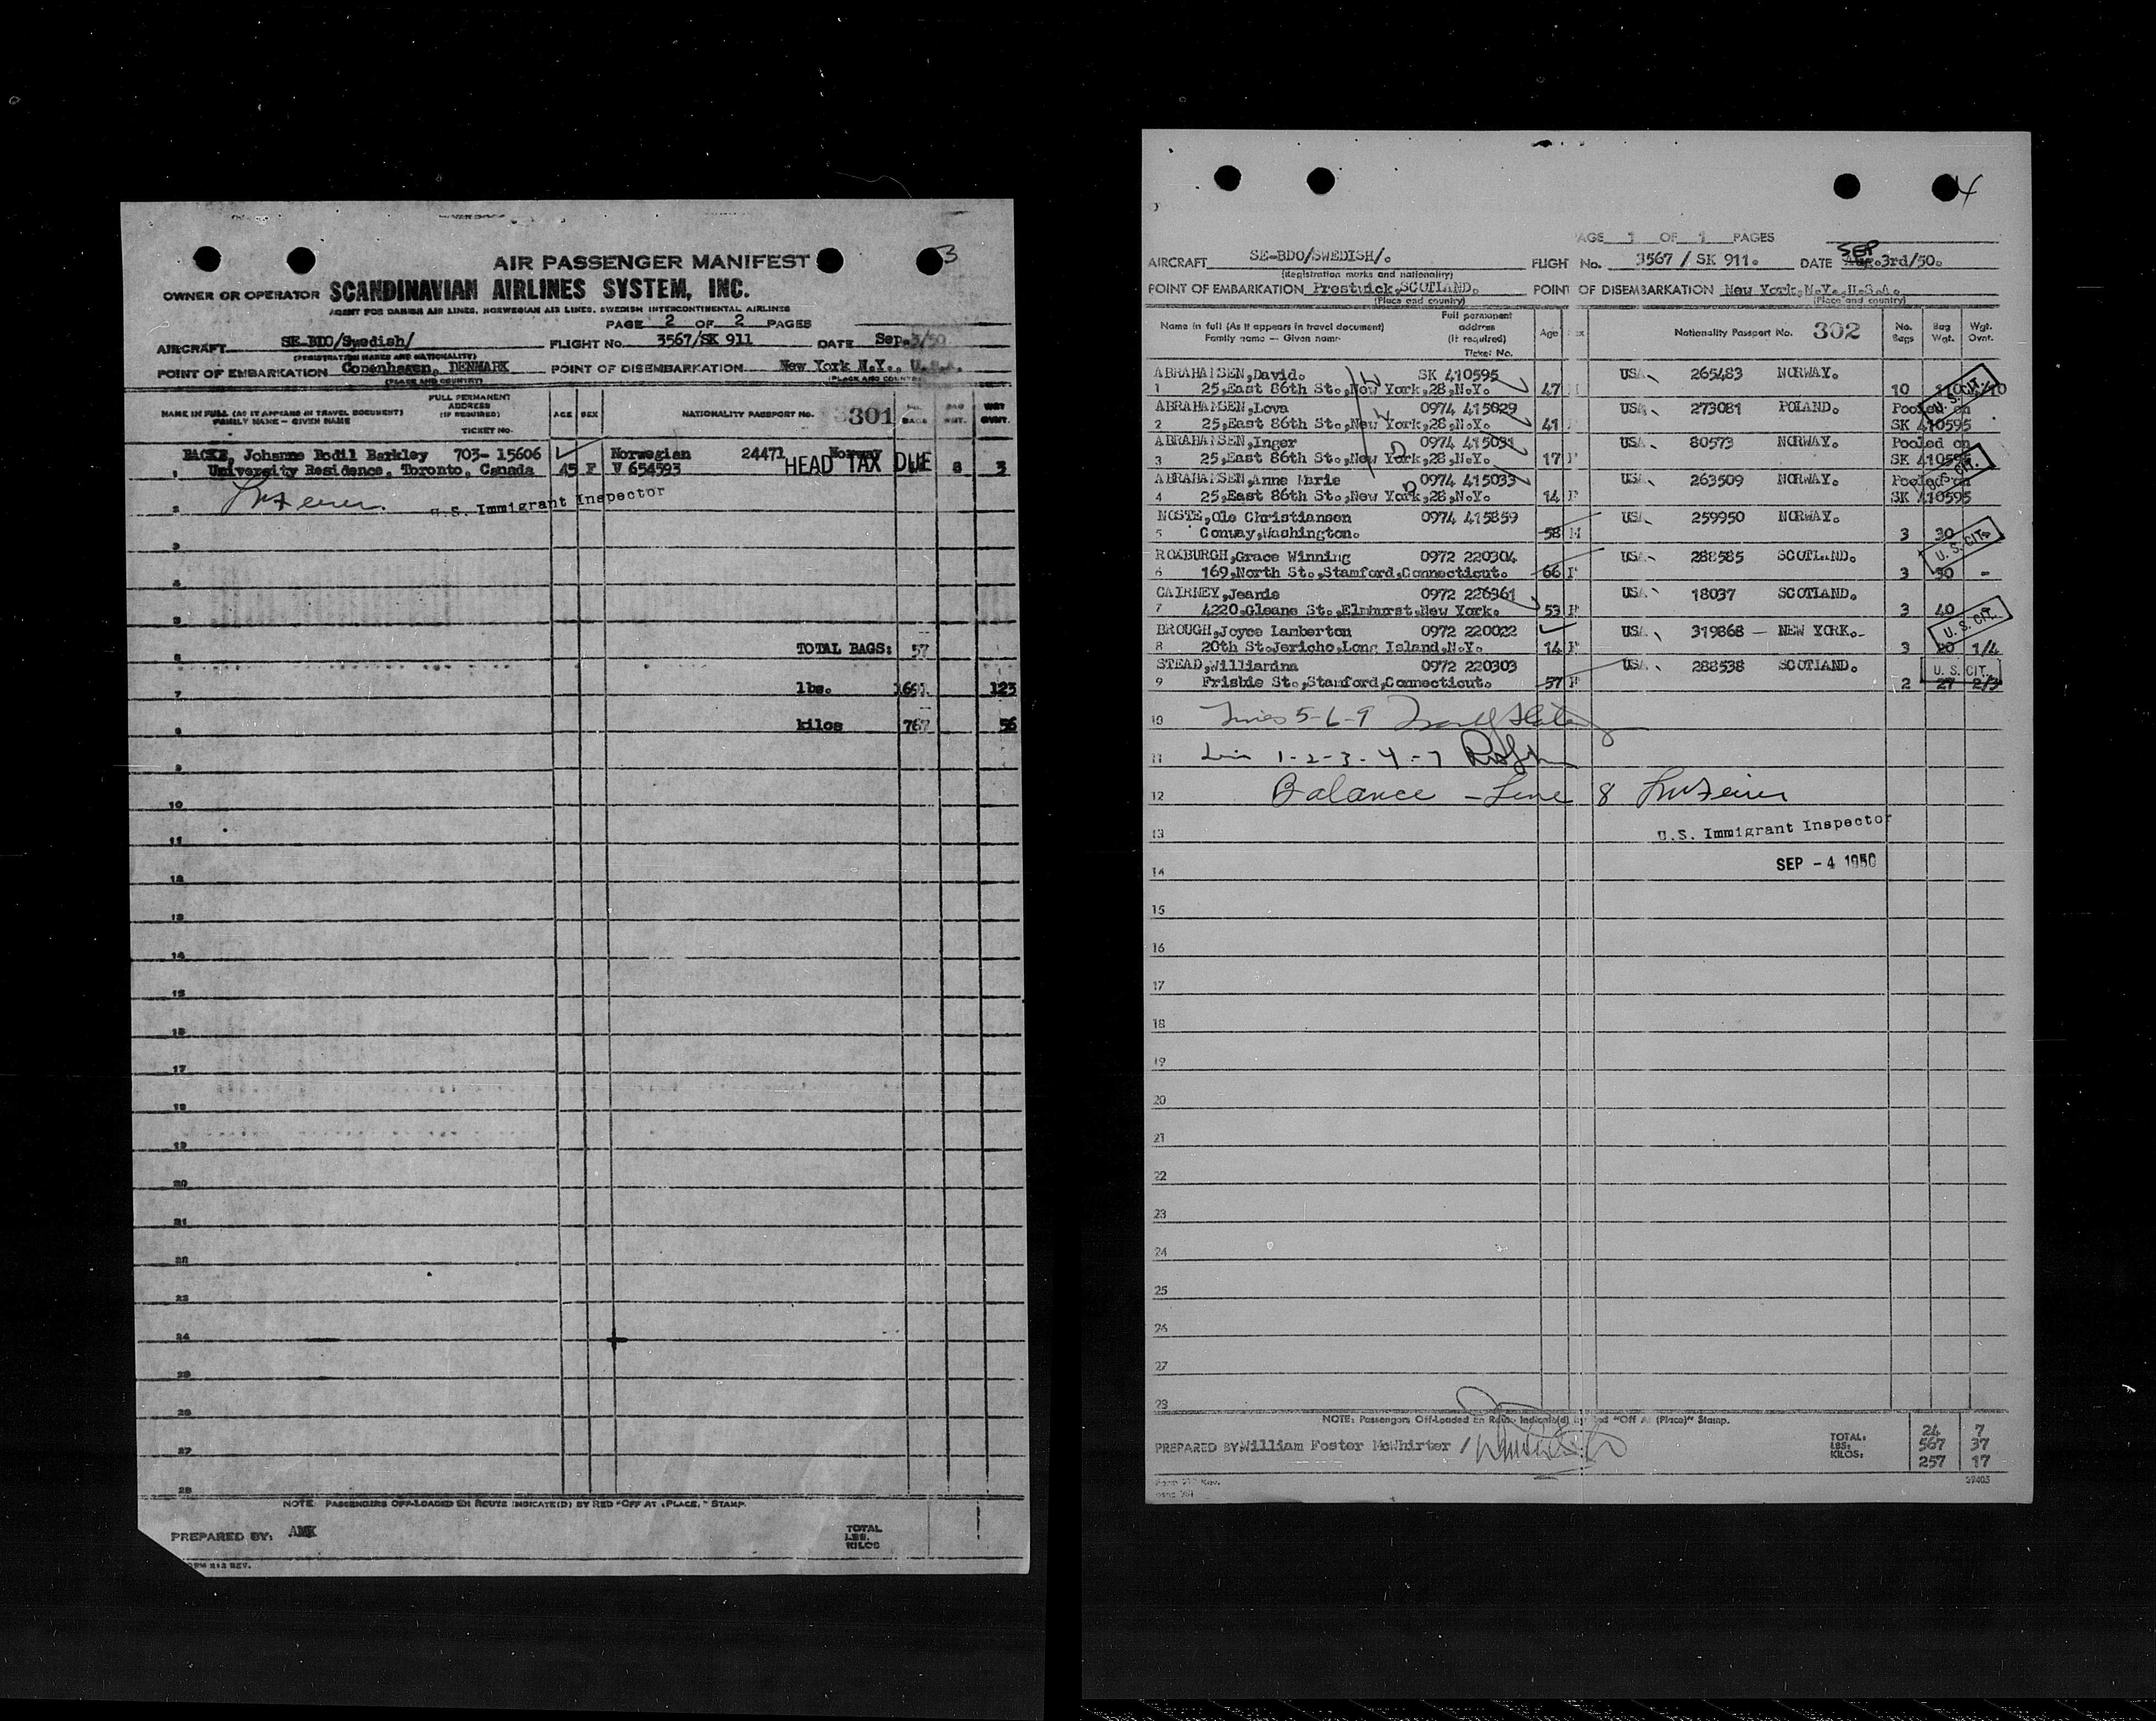 3
AIR PASSENGER MANIFEST
OWNER OR OPERATOR SCANDINAVIAN AIRLINES SYSTEM, INC.
AGENT FOR DANISH AIR LINES, NORWEGIAN AIR LINES, SWEDISH INTERCONTINENTAL AIRLINES
PAGE 2 OF 2 PAGES
AIRCRAFT SE-BDO/Swedish/ FLIGHT No. 3567/SK 911 DATE Sep.3/50
(REGISTRATION MARKS AND NATIONALITY)
POINT OF EMBARKATION Copenhagen, DENMARK POINT OF DISEMBARKATION New York N.Y., U.S.A.
(PLACE AND COUNTRY) (PLACE AND COUNTRY)
NAME IN FULL (AS IT APPEARS IN TRAVEL DOCUMENT) FAMILY NAME — GIVEN NAME FULL PERMANENT ADDRESS (IF REQUIRED) TICKET NO. AGE SEX NATIONALITY PASSPORT NO. 301 BAGS WGT. WGT OVWT.
BACKE, Johanne Bodil Barkley 703- 15606 Norwegian 24471 Norway
1 University Residence, Toronto, Canada 45 F V 654593 HEAD TAX DUE 8 3
2 U.S. Immigrant Inspector
3
4
5
6 TOTAL BAGS: 57
7 lbs. 1691 123
8 kilos 767 56
9
10
11
12
13
14
15
16
17
18
19
20
21
22
23
24
25
26
27
28
NOTE: PASSENGERS OFF-LOADED EN ROUTE INDICATE(D) BY RED "OFF AT (PLACE)" STAMP.
PREPARED BY: AMK TOTAL LBS. KILOS
FORM 212 REV.
4
PAGE 1 OF 1 PAGES
AIRCRAFT SE-BDO/SWEDISH/. FLIGHT No. 3567 / SK 911. DATE Aug. SEP 3rd/50.
(Registration marks and nationality)
POINT OF EMBARKATION Prestwick,SCOTLAND. POINT OF DISEMBARKATION New York,N.Y.,U.S.A.
(Place and country) (Place and country)
Name in full (As it appears in travel document) Family name — Given name Full permanent address (If required) Ticket No. Age Sex Nationality Passport No. 302 No. Bags Bag Wgt. Wgt. Ovwt.
ABRAHAMSEN,David. SK 410595 USA 265483 NORWAY.
1 25,East 86th St.,New York,28,N.Y. 47 M 10
ABRAHAMSEN,Lova 0974 415029 USA 273081 POLAND. Pooled on
2 25,East 86th St.,New York,28,N.Y. 41 F SK 410595
ABRAHAMSEN,Inger 0974 415031 USA 80573 NORWAY. Pooled on
3 25,East 86th St.,New York,28,N.Y. 17 F SK 410595
ABRAHAMSEN,Anne Marie 0974 415033 USA 263509 NORWAY. Pooled on
4 25,East 86th St.,New York,28,N.Y. 14 F SK 410595
NOSTE,Ole Christiansen 0974 415859 USA 259950 NORWAY.
5 Conway,Washington. 58 M 3 30
ROXBURGH,Grace Winning 0972 220304 USA 288585 SCOTLAND.
6 169,North St.,Stamford,Connecticut. 66 F 3 30 -
CAIRNEY,Jeanie 0972 226361 USA 18037 SCOTLAND.
7 4220,Gleane St.,Elmhurst,New York. 53 F 3 40
BROUGH,Joyce Lamberton 0972 220022 USA 319868 — NEW YORK.
8 20th St.Jericho,Long Island,N.Y. 14 F 3 20 1/4
STEAD,Williardina 0972 220303 USA 288538 SCOTLAND.
9 Frisbie St.,Stamford,Connecticut. 57 F 2 27 2/3
U. S. CIT.
U. S. CIT.
U. S. CIT.
U. S. CIT.
U. S. CIT.
10 Lines 5-6-9
11 Lines 1-2-3-4-7
12 Balance - Line 8
13 U.S. Immigrant Inspector
14 SEP - 4 1950
15
16
17
18
19
20
21
22
23
24
25
26
27
28
NOTE: Passengers Off-Loaded En Route Indicate(d) by Red "Off At (Place)" Stamp.
PREPARED BY William Foster McWhirter / TOTAL: 24 7
LBS: 567 37
KILOS: 257 17
29403